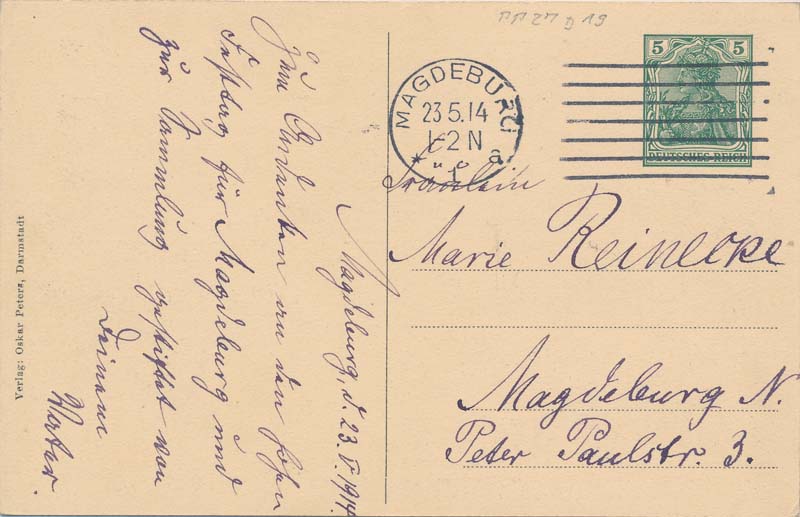 PP 27 D 19
5 5
DEUTSCHES REICH
MAGDEBURG
23.5.14
1-2 N
* 1 a
Fräulein
Marie Reinecke
Magdeburg N.
Peter Paulstr. 3.
Magdeburg, d. 23. V. 1914.
Zum Andenken an den hohen
Festtag für Magdeburg und
zur Sammlung gestiftet von
Deinem
Vater.
Verlag: Oskar Peters, Darmstadt